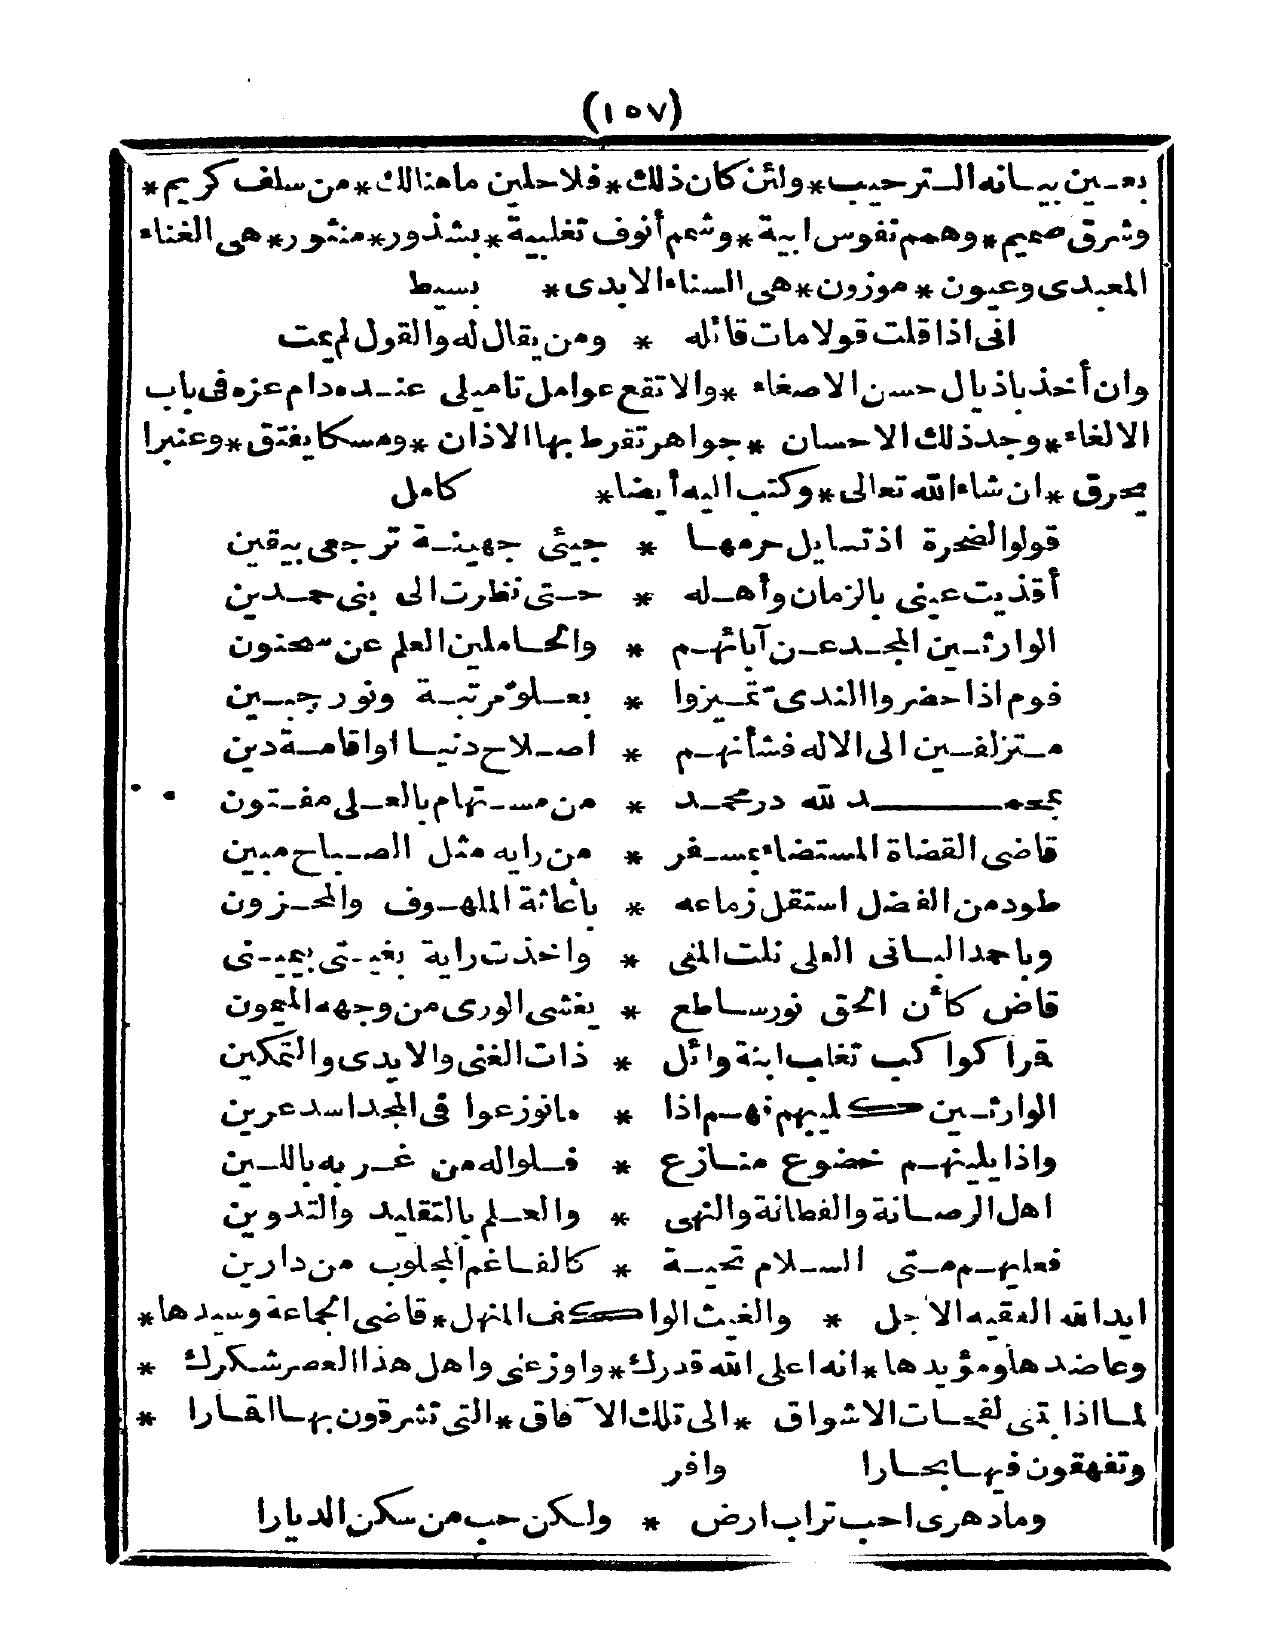 (١٥٧)
بعين بيانه الترحيب * ولئن كان ذلك * فلاحلين ما هنالك * من سلف كريم *
وشرق صميم * وهمم نفوس ابية * وشمم أنوف تغلبية * بشذور * منثور * هى الغناء
المعبدى وعيون * موزون * هى السناء الابدى * بسيط
انى اذا قلت قولا مات قائله * ومن يقال له والقول لم يمت
وان أخذ باذيال حسن الاصغاء * والا تقع عوامل تاميلى عنده دام عزه فى باب
الالغاء * وجد ذلك الاحسان * جواهر تقرط بها الاذان * ومسكا يفتق * وعنبرا
يحرق * ان شاء الله تعالى * وكتب اليه أيضا * كامل
قولوا لضخرة اذ تسايل حرمها * جيئى جهينة ترجعى بيقين
أقذيت عينى بالزمان وأهله * حتى نظرت الى بنى حمدين
الوارثين المجد عن آبائهم * والحاملين العلم عن سحنون
قوم اذا حضروا الندى تميزوا * بعلو مرتبة ونور جبين
متزلفين الى الاله فشأنهم * اصلاح دنيا او اقامة دين
بمحمد لله در محمد * من مستهام بالعلى مفتون
قاضى القضاة المستضاء بمسفر * من رايه مثل الصباح مبين
طود من الفضل استقل زماعه * باغاثة الملهوف والمحزون
وباحمد البانى العلى نلت المنى * واخذت راية بغيتى بيمينى
قاض كأن الحق نور ساطع * يغشى الورى من وجهه الميمون
قرا كواكب تغلب ابنة وائل * ذات الغنى والايدى والتمكين
الوارثين كليبهم فهم اذا * مانوزعوا فى المجد اسد عرين
واذا يلينهم خضوع منازع * فلوا له من غربه باللين
اهل الرصانة والفطانة والنهى * والعلم بالتقليد والتدوين
فعليهم متى السلام تحية * كالفاغم المجلوب من دارين
ايد الله الفقيه الاجل * والغيث الواكف المنهل * قاضى الجماعة وسيدها *
وعاضدها ومؤيدها * انه اعلى الله قدرك * واوزعنى واهل هذا العصر شكرك *
لما اذابتنى لفحات الاشواق * الى تلك الآفاق * التى تشرقون بها اقمارا *
وتفهقون فيها بحارا وافر
وما دهرى احب تراب ارض * ولكن حب من سكن الديارا